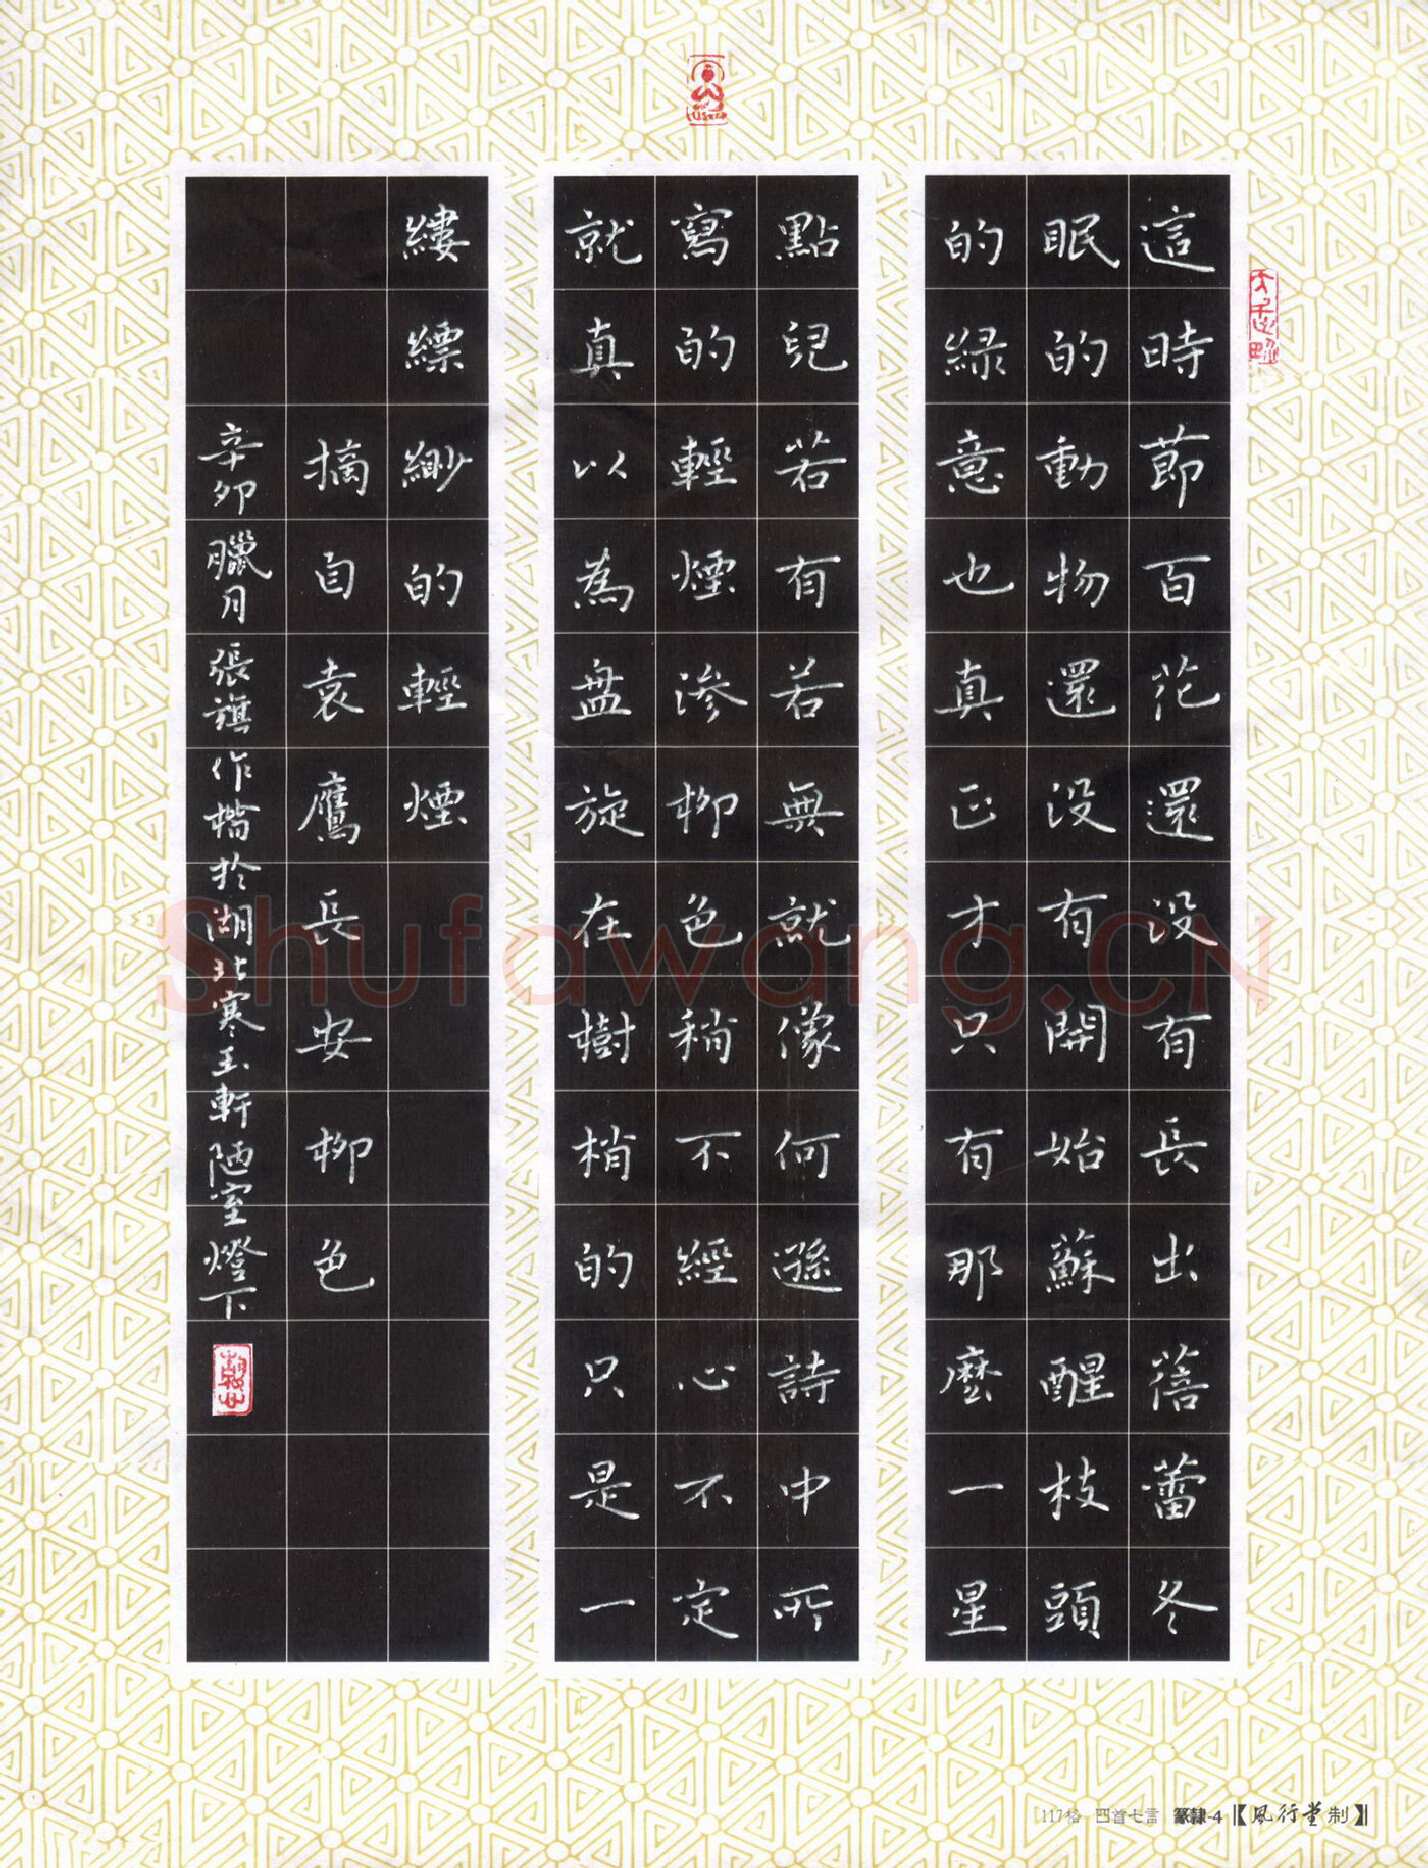 這時節百花還没有長出蓓蕾冬
眠的動物還没有開始蘇醒枝頭
的緑意也真正才只有那麽一星
點兒若有若無就像何遜詩中所
寫的輕煙滲柳色稍不經心不定
就真以為盤旋在樹梢的只是一
縷縹緲的輕煙
摘自袁鷹長安柳色
辛卯臘月張旗作楷於湖北寒玉軒陋室燈下
Shufawang.CN
117格 四首七言 篆隸-4【風行堂制】